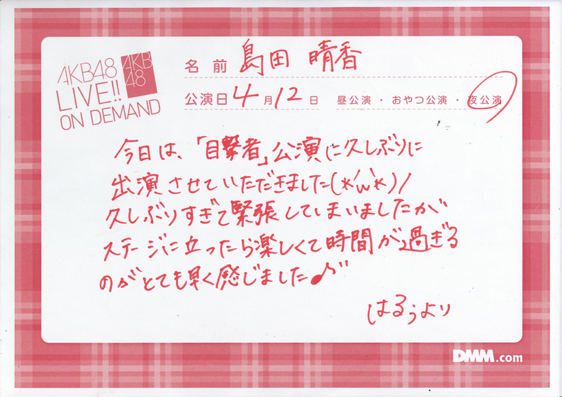 AKB48
LIVE!!
ON DEMAND
AKB
48
名前 島田 晴香
公演日 4月12日 昼公演・おやつ公演・夜公演
今日は、「目撃者」公演に久しぶりに
出演させていただきました(*'ω'*)/
久しぶりすぎて緊張してしまいましたが
ステージに立ったら楽しくて時間が過ぎる
のがとても早く感じました♪
はるぅより
DMM.com